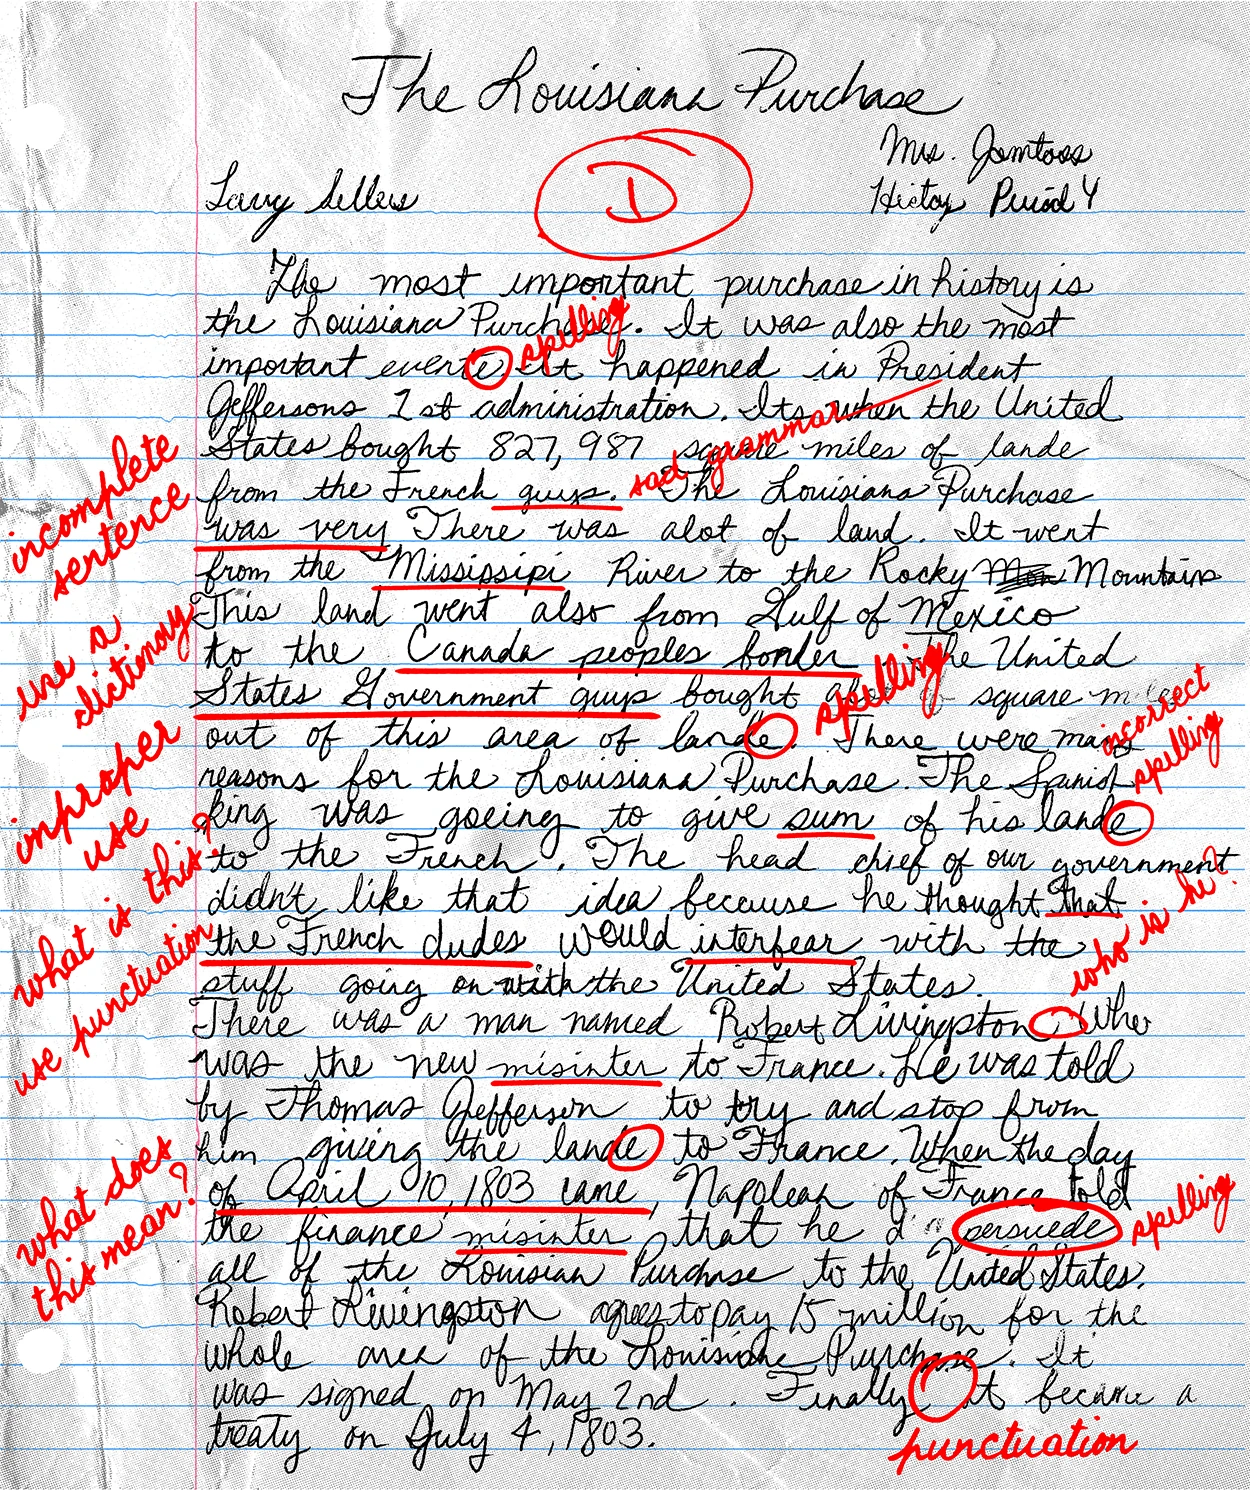 The Louisiana Purchase
Mrs. Jamtoss
Larry Sellers
D
History Period 4
The most important purchase in history is
the Louisiana Purchase. It was also the most
spelling
important evente It happened in President
Jeffersons 1st administration. Its when the United
sad grammar
States bought 827,987 square miles of lande
from the French guys. The Louisiana Purchase
incomplete
sentence
was very There was alot of land. It went
from the Mississipi River to the Rocky Mountains
use a
dictionary
This land went also from Gulf of Mexico
to the Canada peoples border The United
spelling
States Government guys bought alot of square miles
improper
use
out of this area of lande. There were many
incorrect
spelling
reasons for the Louisiana Purchase. The Spanish
king was goeing to give sum of his lande
what is this?
to the French. The head chief of our government
who is he?
didn't like that idea because he thought that
the French dudes would interfear with the
use punctuation
stuff going on with the United States.
There was a man named Robert Livingston. Who
was the new misinter to France. He was told
by Thomas Jefferson to try and stop from
him giving the lande to France. When the day
what does
this mean?
of April 10, 1803 came, Napolean of France told
the finance misinter that he persuede
spelling
all of the Louisian Purchase to the United States.
Robert Livingston agrees to pay 15 million for the
whole area of the Louisiane Purchase. It
was signed on May 2nd. Finally it became a
punctuation
treaty on July 4, 1803.